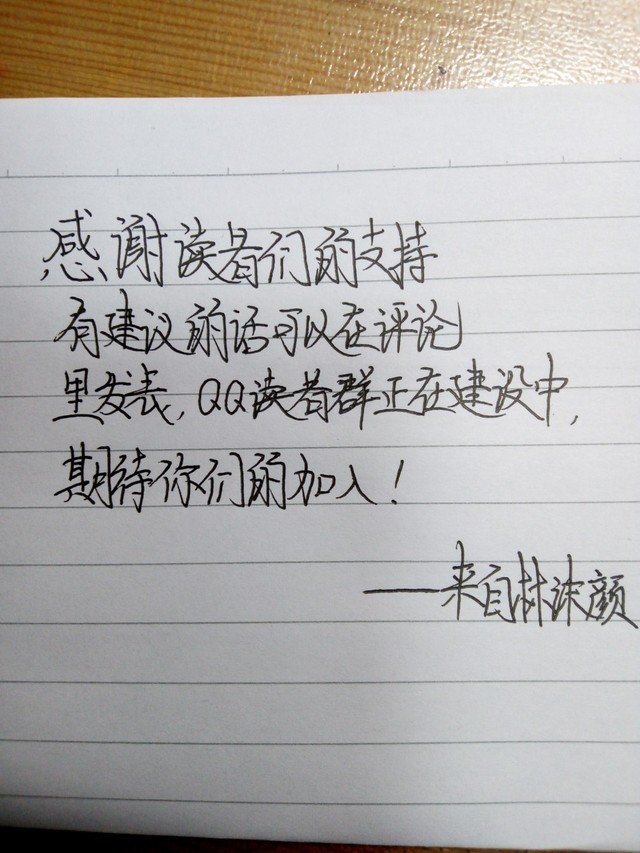 感谢读者们的支持
有建议的话可以在评论
里发表,QQ读者群正在建设中,
期待你们的加入!
——来自林沫颜